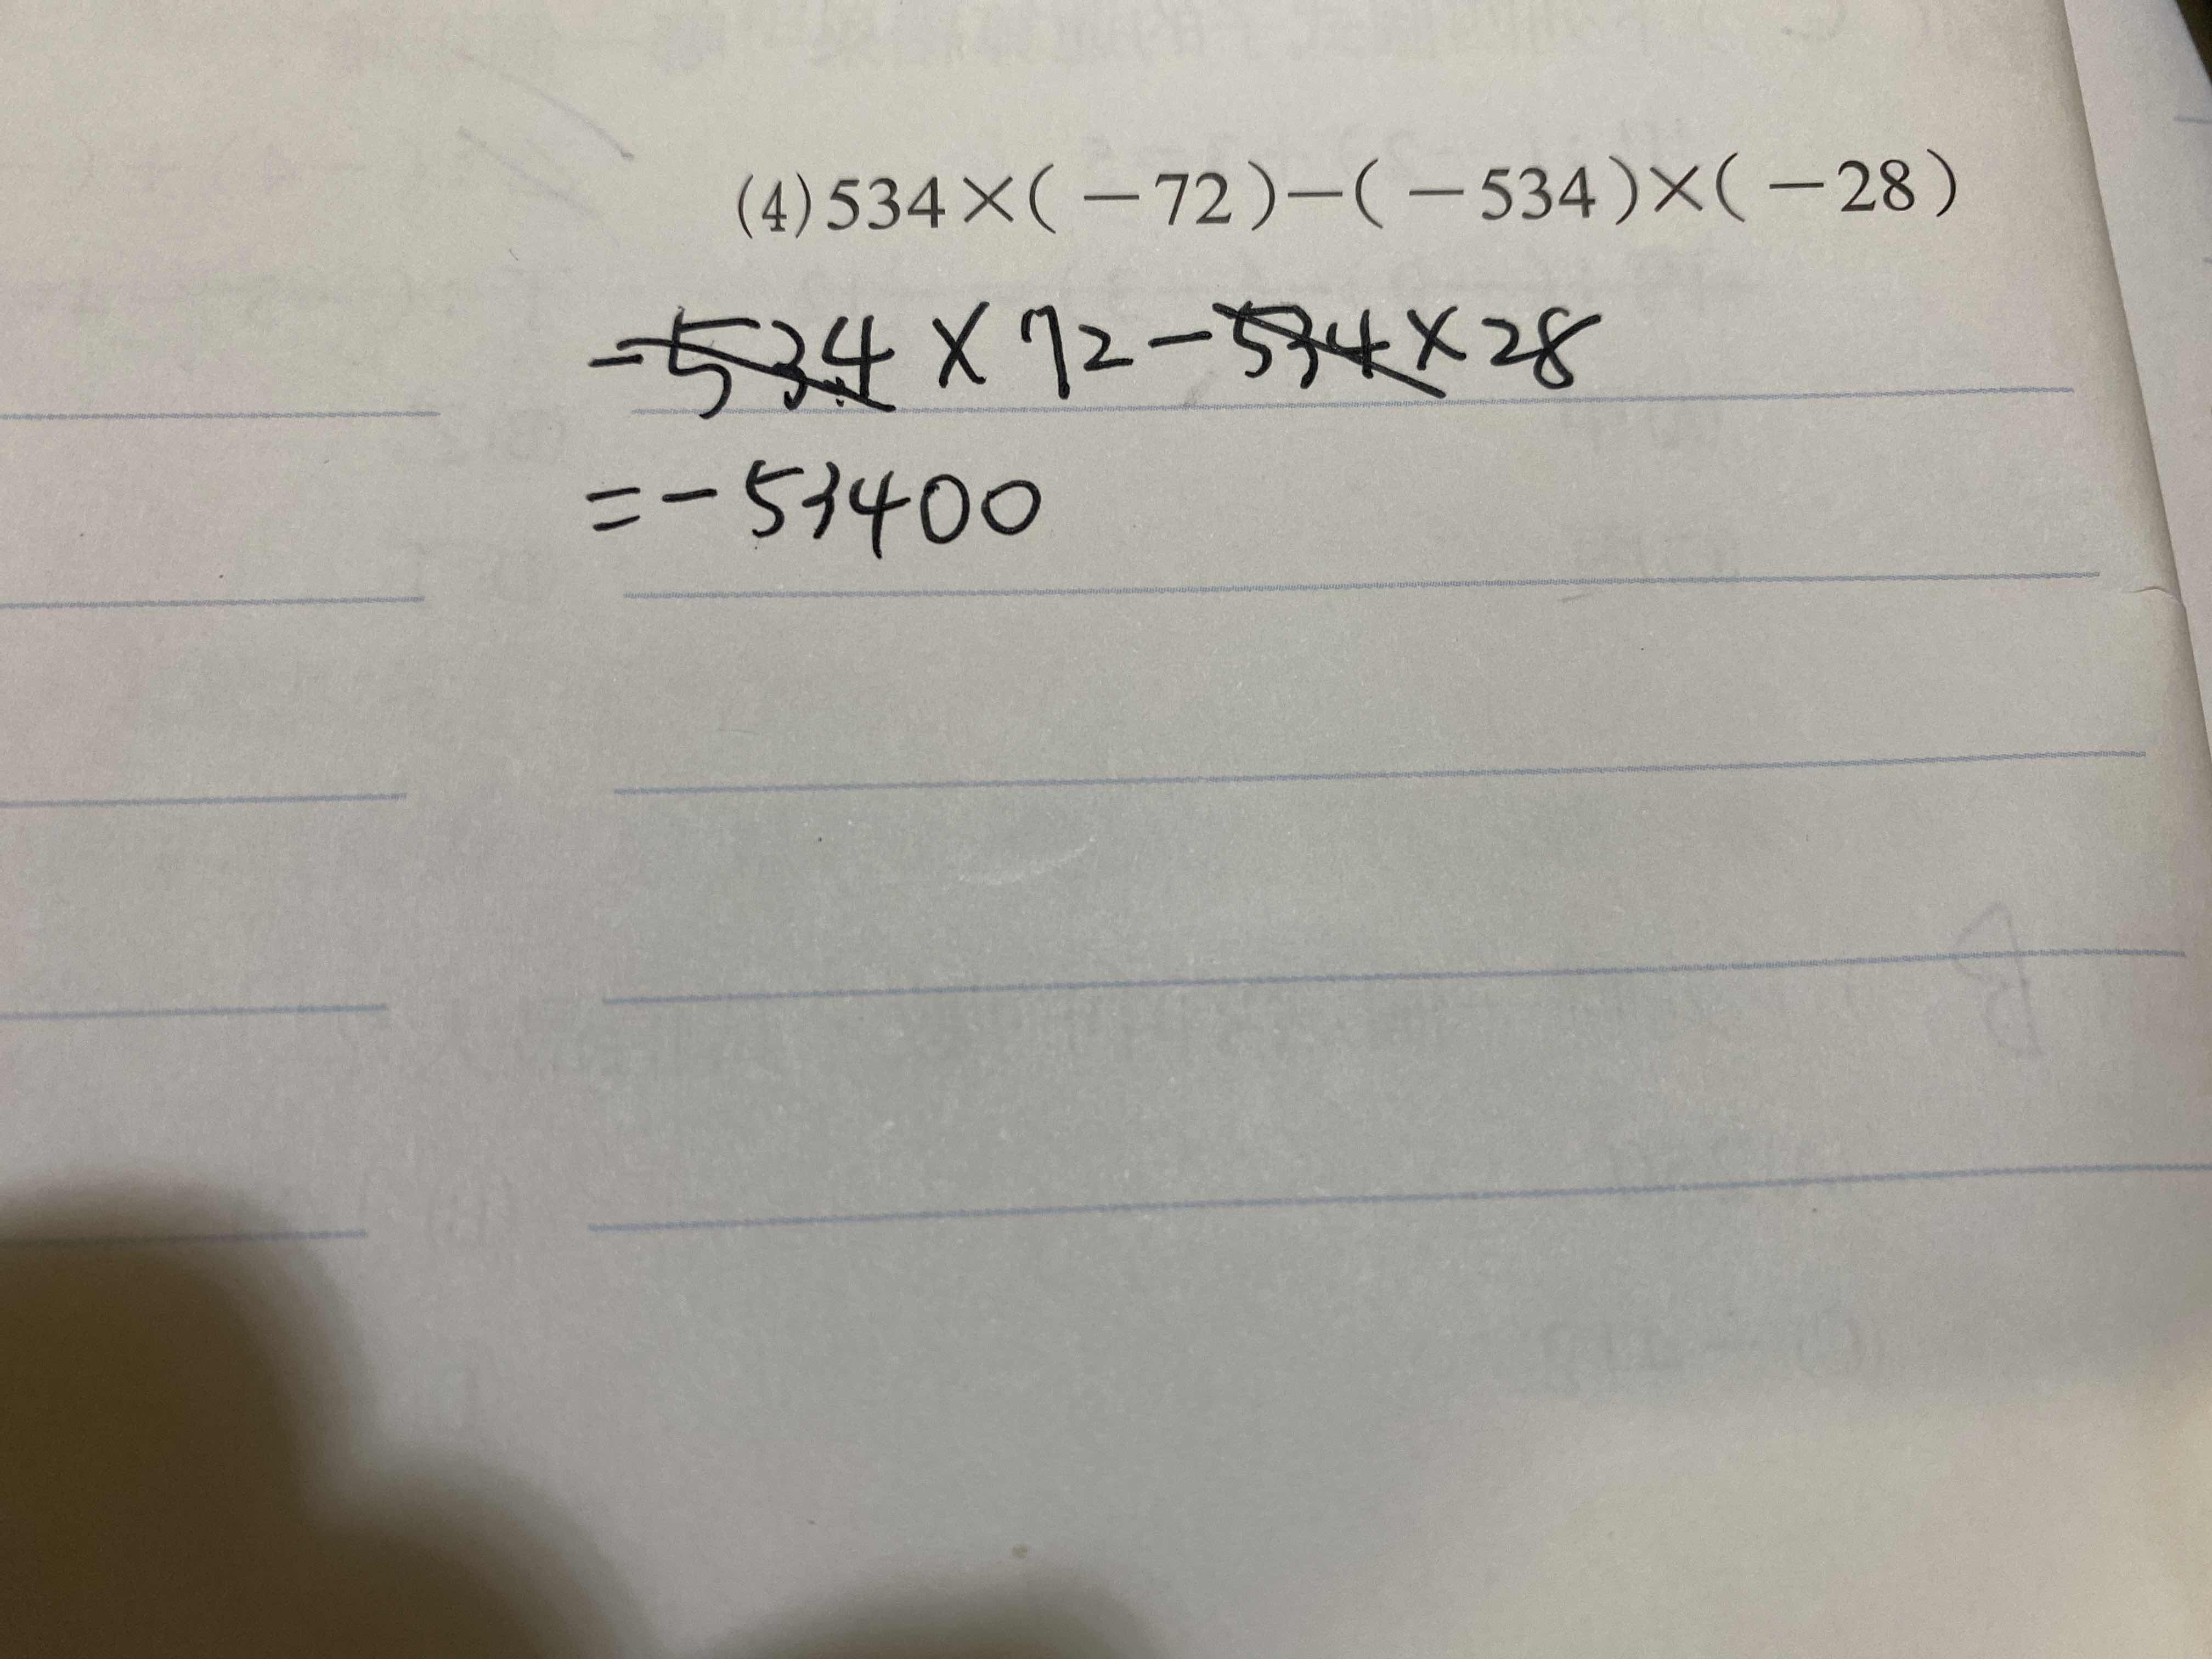 (4)534×(-72)-(-534)×(-28)
=-534×72-534×28
=-53400